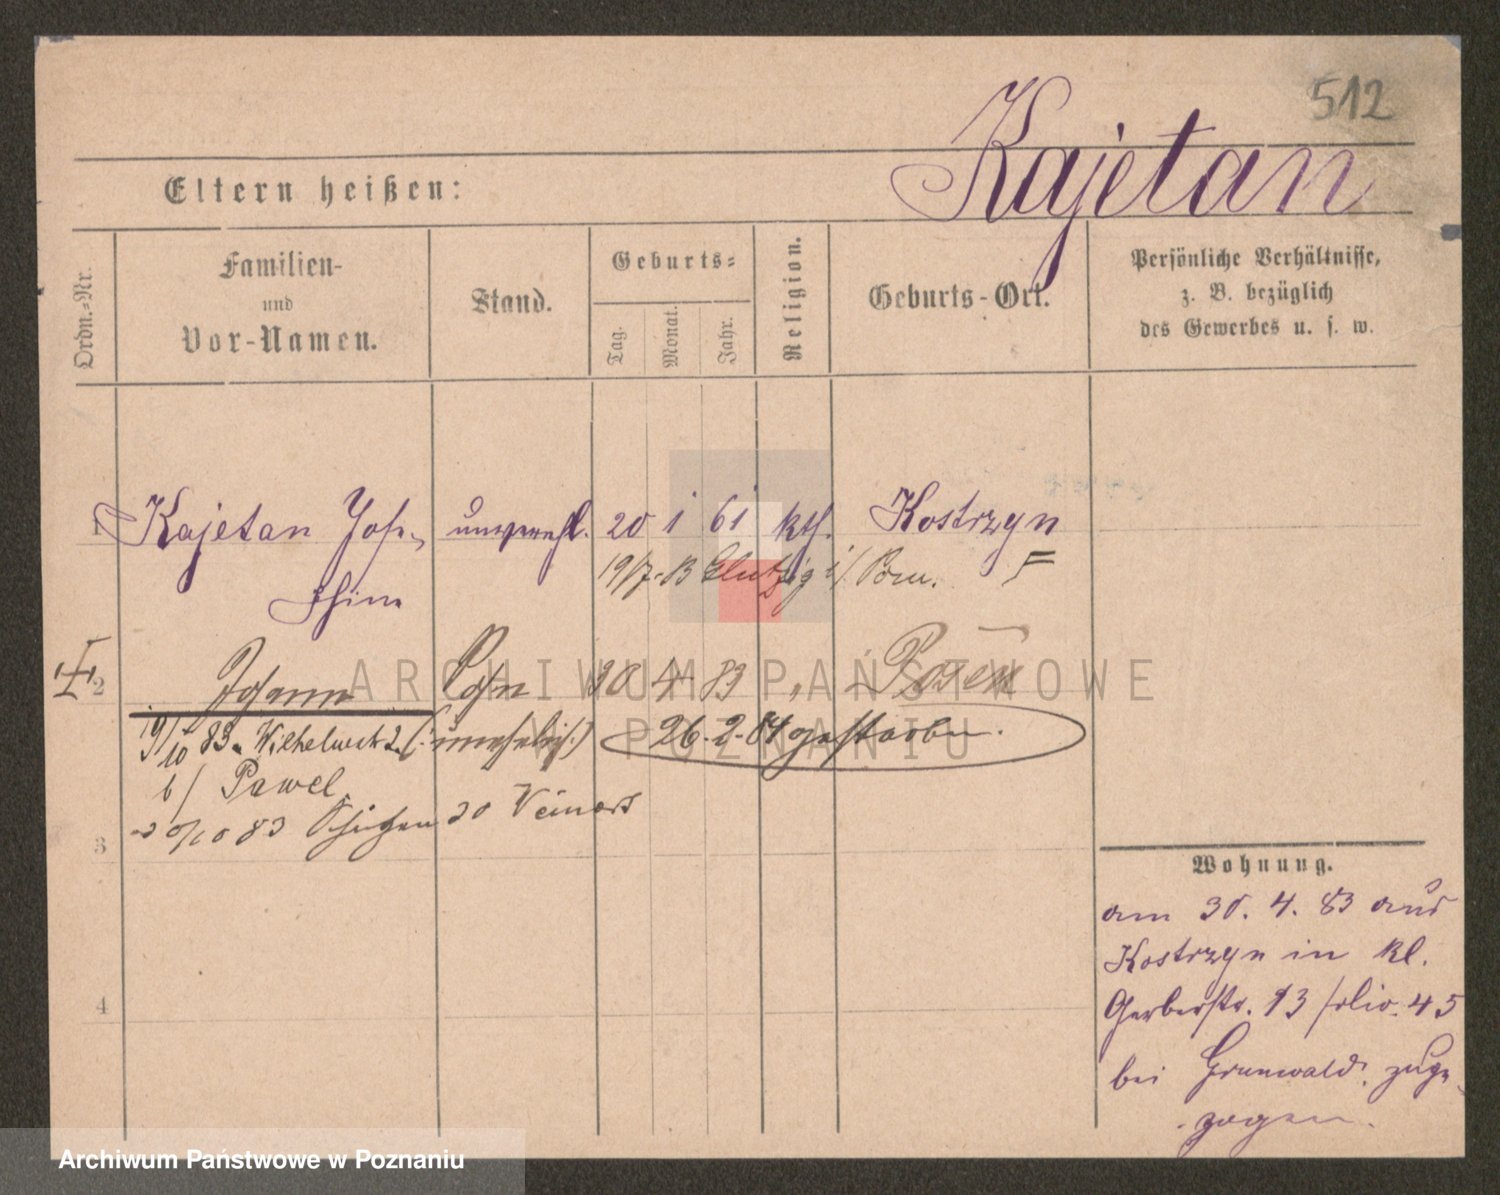 512
Kajetan
Eltern heißen:
Ordn.-Nr.
Familien-
und
Vor-Namen.
Stand.
Geburts-
Tag.
Monat.
Jahr.
Religion.
Geburts-Ort.
Persönliche Verhältnisse,
z. B. bezüglich
des Gewerbes u. s. w.
1 Kajetan Jose- unverehl. 20 1 61 kth. Kostrzyn
phine
19/7. i/ Pom.
2 Johann Sohn 30 4 83 " Posen
19/10 83 (: unehelich :) 26.2.84 gestorben.
b/ Pawel
3 20/10 83
4
Wohnung.
am 30. 4. 83 aus
Kostrzyn in kl.
Gerberstr. 13
bei Grunwald zuge-
zogen.
ARCHIWUM PAŃSTWOWE
W POZNANIU
Archiwum Państwowe w Poznaniu